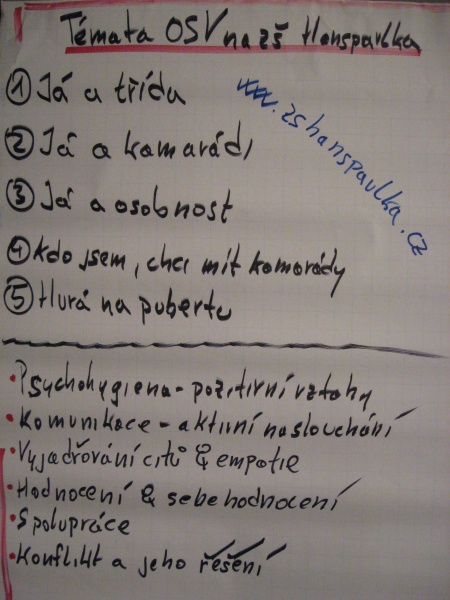 Témata OSV na zš Hanspaulka
① Já a třída
② Já a kamarádi
③ Já a osobnost
④ Kdo jsem, chci mít kamarády
⑤ Hurá na pubertu
www.zshanspaulka.cz
• Psychohygiena - pozitivní vztahy
• Komunikace - aktivní naslouchání
• Vyjadřování citů & empatie
• Hodnocení & sebehodnocení
• Spolupráce
• Konflikt a jeho řešení